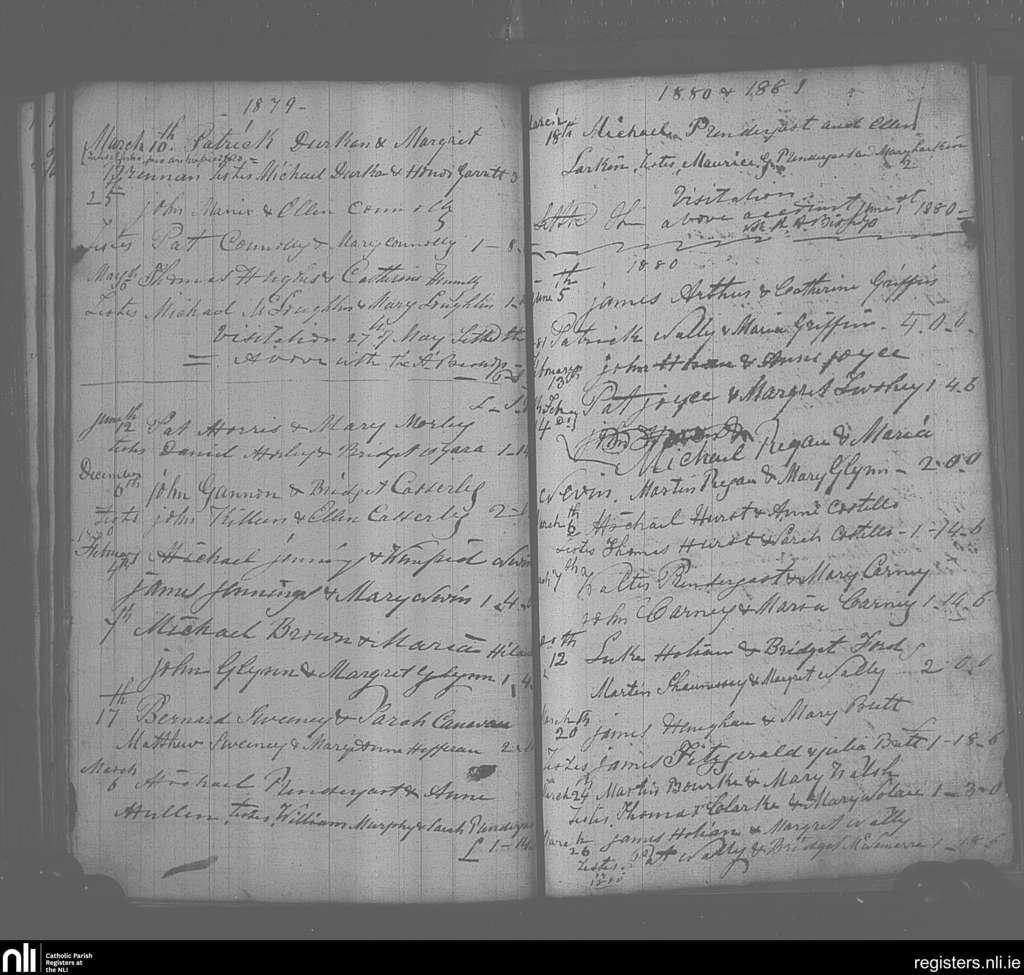 1879-
March 10th Patrick Durkan & Margret
Brennan Testes Michael Durkan & Honor Garrett 3
25 John Manix & Ellen Connolly
Testes Pat Connolly & Mary Connolly 1-8-
May Thomas Hughes & Catherine
Testes Michael McLoughlin & Mary Loughlin 1-
Visitation 27th of May Settled the
= Above with the A
£-S-
June 12th Pat Morris & Mary Morley
testes Daniel Morley & Bridget 1-
December 6th John Gannon & Bridget Casserley
Testes John Killeen & Ellen Casserley 2-
February 4th Michael Jennings & Winifrid Nevin
James Jennings & Mary Nevin 1-4-
7th Michael Brown & Maria
John Glynn & Margret Glynn 1-4
17th Bernard Sweeney & Sarah Canavan
Matthew Sweeney & Mary Anne Heffran 2-
March 6 Michael Pendergast & Anne
Mullen Testes William Murphy & Sarah
£ 1-14
1880 & 1881
March 18th Michael Prendergast and Ellen
Larkin, Testes, Maurice G Prendergast & Mary Larkin
Visitation
Settled the above account June 1st 1880-
1880
June 5th James Arthur & Catherine Griffin
Patrick Nally & Maria Griffin - 4.0.0-
February 13th John Horan & Anne Joyce
Pat Joyce & Margret Twohey 1 4.6
14 Do
Michael Regan & Maria
Nevin. Martin Regan & Mary Glynn - 2-0-0
March 6th Michael Hurst & Anne Costello
Testes Thomas Hurst & Sarah Costello - 1-14-6
7th Walter Prendergast & Mary Carney
John Carney & Maria Carney 1-14-6
12th Luke Hoban & Bridget Ford
Martin Shaunnessy & Margret Nally 2 0.0
March 20th James Heneghan & Mary Butt
Testes James Fitzgerald & Julia Butt 1-18-6
March 24th Martin Bourke & Mary Walsh
Testes, Thomas Clarke & Mary 1-3-0
March 26 James Hoban & Margret Nally
Testes. Pat Nally & Bridget 1-
nli
Catholic Parish
Registers at
the NLI
registers.nli.ie